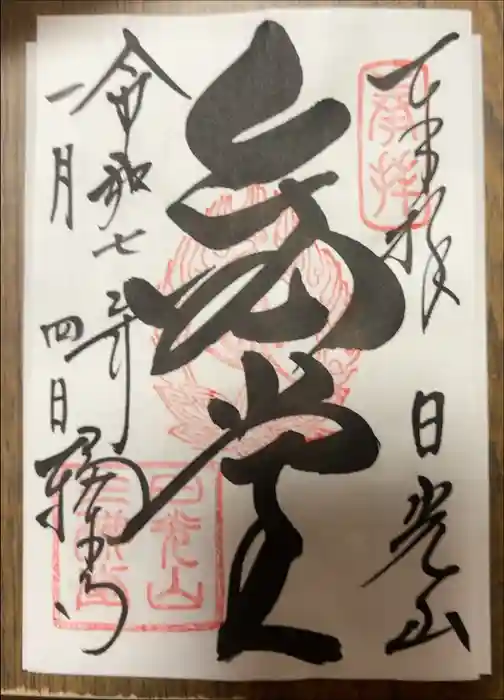 奉拝
奉拝 日光山
堂
令和七年
一月四日
輪王寺
日光山